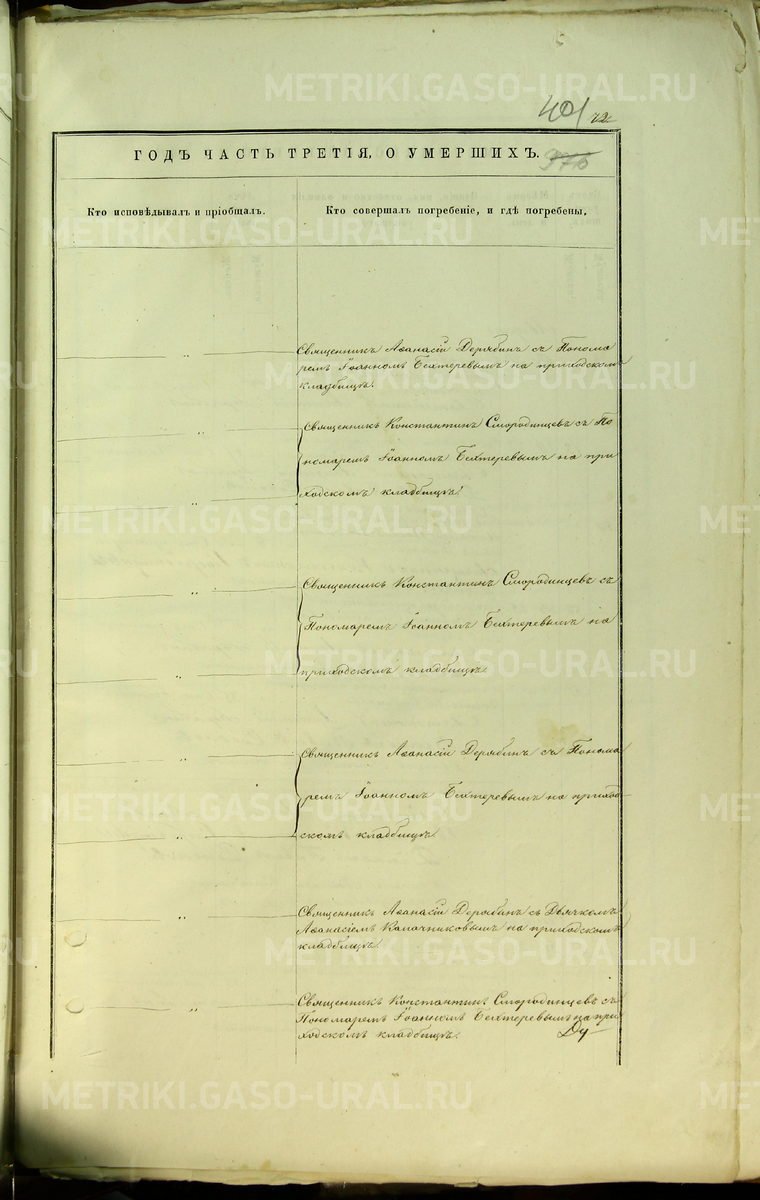 401 72
ГОДЪ ЧАСТЬ ТРЕТІЯ, О УМЕРШИХЪ.
Кто исповѣдывалъ и пріобщалъ.
Кто совершалъ погребеніе, и гдѣ погребены,
Священникъ Аѳанасій Дерябинъ съ Понома
ремъ Іоанномъ Бехтеревымъ на приходскомъ
кладбищѣ.
Священникъ Константинъ Смородинцевъ съ По
номаремъ Іоанномъ Бехтеревымъ на при
ходскомъ кладбищѣ.
Священникъ Константинъ Смородинцевъ съ
Пономаремъ Іоанномъ Бехтеревымъ на
приходскомъ кладбищѣ.
Священникъ Аѳанасій Дерябинъ съ Понома
ремъ Іоанномъ Бехтеревымъ на приход
скомъ кладбищѣ.
Священникъ Аѳанасій Дерябинъ съ Дьячкомъ
Аѳанасіемъ Калачниковымъ на приходскомъ
кладбищѣ.
Священникъ Константинъ Смородинцевъ съ
Пономаремъ Іоанномъ Бехтеревымъ на при
ходскомъ кладбищѣ.
METRIKI.GASO-URAL.RU